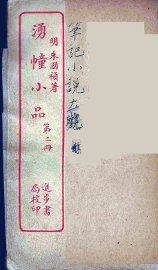 明朱國禎著
湧幢小品
第二冊
進步書
局校印
筆記小説